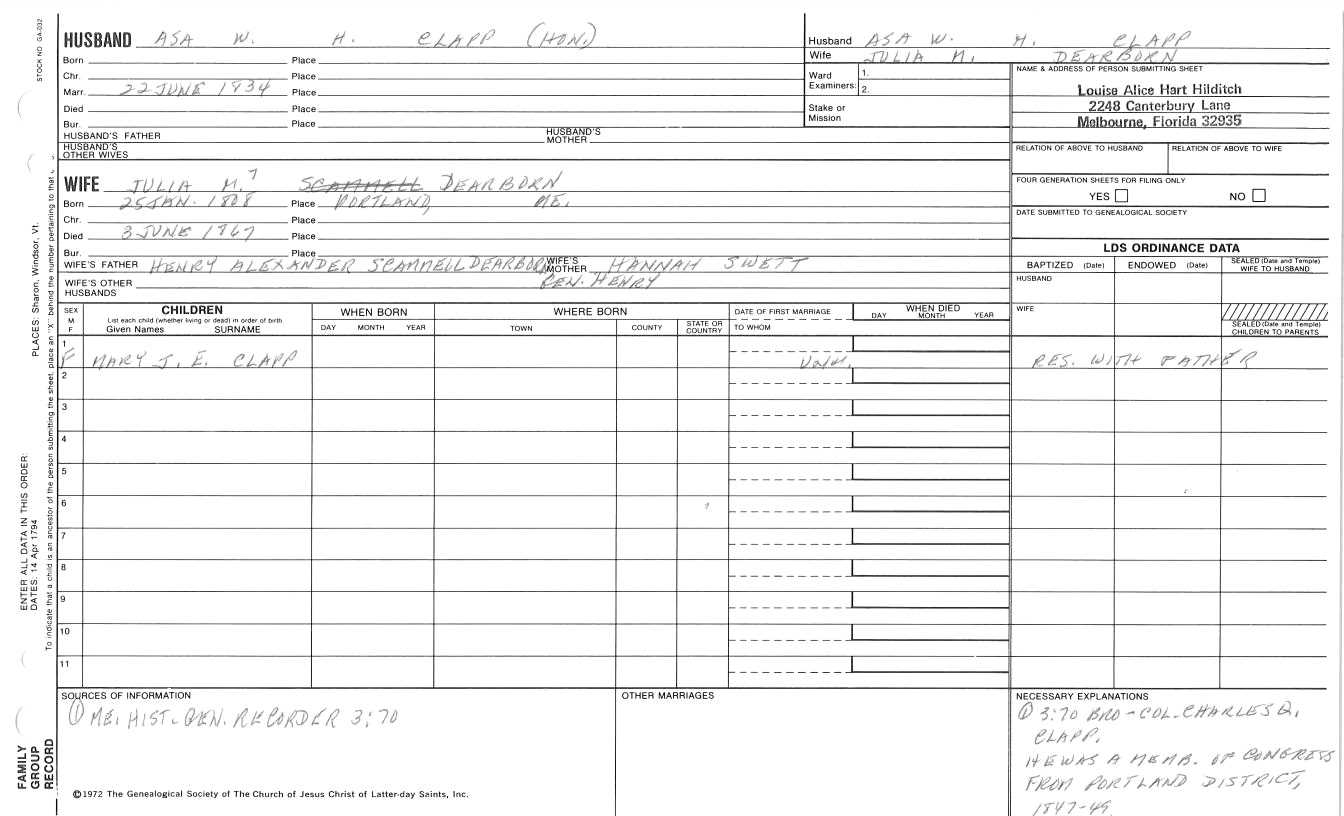 STOCK NO. GA-032
HUSBAND ASA W. H. CLAPP (HON.)
Born Place
Chr. Place
Marr. 22 JUNE 1834 Place
Died Place
Bur. Place
HUSBAND'S FATHER HUSBAND'S MOTHER
HUSBAND'S OTHER WIVES
WIFE JULIA M.7 SCAMMELL DEARBORN
Born 25 JAN. 1808 Place PORTLAND, ME.
Chr. Place
Died 3 JUNE 1867 Place
Bur. Place
WIFE'S FATHER HENRY ALEXANDER SCAMMELL DEARBORN WIFE'S MOTHER HANNAH SWETT
WIFE'S OTHER HUSBANDS HENRY
Husband ASA W. H. CLAPP
Wife JULIA M. DEARBORN
Ward Examiners: 1.
2.
Stake or Mission
NAME & ADDRESS OF PERSON SUBMITTING SHEET
Louise Alice Hart Hilditch
2248 Canterbury Lane
Melbourne, Florida 32935
RELATION OF ABOVE TO HUSBAND RELATION OF ABOVE TO WIFE
FOUR GENERATION SHEETS FOR FILING ONLY
YES NO
DATE SUBMITTED TO GENEALOGICAL SOCIETY
LDS ORDINANCE DATA
BAPTIZED (Date) ENDOWED (Date) SEALED (Date and Temple) WIFE TO HUSBAND
HUSBAND
WIFE
SEALED (Date and Temple) CHILDREN TO PARENTS
SEX M F
CHILDREN
List each child (whether living or dead) in order of birth
Given Names SURNAME
WHEN BORN
DAY MONTH YEAR
WHERE BORN
TOWN COUNTY STATE OR COUNTRY
DATE OF FIRST MARRIAGE
TO WHOM
WHEN DIED
DAY MONTH YEAR
1
F MARY J. E. CLAPP RES. WITH FATHER
2
3
4
5
6
7
8
9
10
11
SOURCES OF INFORMATION
① ME. HIST. GEN. RECORDER 3:70
OTHER MARRIAGES
NECESSARY EXPLANATIONS
① 3:70 BRO - COL. CHARLES Q. CLAPP.
HE WAS A MEMB. OF CONGRESS
FROM PORTLAND DISTRICT,
1847-49.
©1972 The Genealogical Society of The Church of Jesus Christ of Latter-day Saints, Inc.
FAMILY GROUP RECORD
ENTER ALL DATA IN THIS ORDER:
DATES: 14 Apr 1794
PLACES: Sharon, Windsor, Vt.
To indicate that a child is an ancestor of the person submitting the sheet, place an "X" behind the number pertaining to that